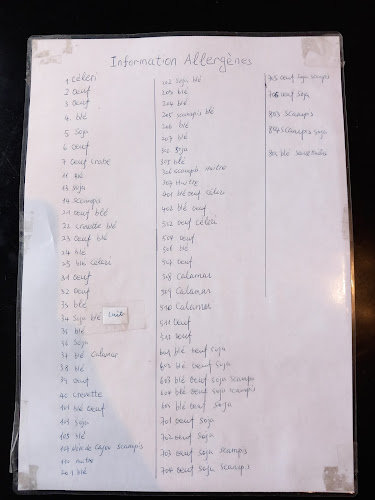 Information Allergènes
1 céleri
2 oeuf
3 oeuf
4 blé
5 soja
6 oeuf
7 oeuf crabe
11 blé
13 soja
14 scampis
21 oeuf blé
22 crevette blé
23 oeuf blé
24 blé
25 blé céleri
31 oeuf
32 oeuf
33 blé
34 soja blé Lait
35 blé
36 soja
37 blé calamar
38 blé
39 oeuf
40 crevette
101 blé oeuf
104 soja
105 blé
109 noix de cajou scampis
110 huitre
201 blé
202 soja blé
203 blé
204 blé
205 scampis blé
206 blé
207 blé
302 soja
305 blé
306 scampis huitre
307 huitre
401 blé oeuf céleri
402 blé oeuf
502 oeuf céleri
504 oeuf
506 blé
507 oeuf
508 Calamar
509 Calamar
510 Calamar
511 oeuf
512 oeuf
601 blé oeuf soja
602 blé oeuf soja
603 blé oeuf soja scampis
604 blé oeuf soja scampis
605 blé oeuf soja
701 oeuf soja
702 oeuf soja
703 oeuf soja scampis
704 oeuf soja scampis
705 oeuf soja scampis
706 oeuf soja
803 scampis
804 scampis soja
805 blé